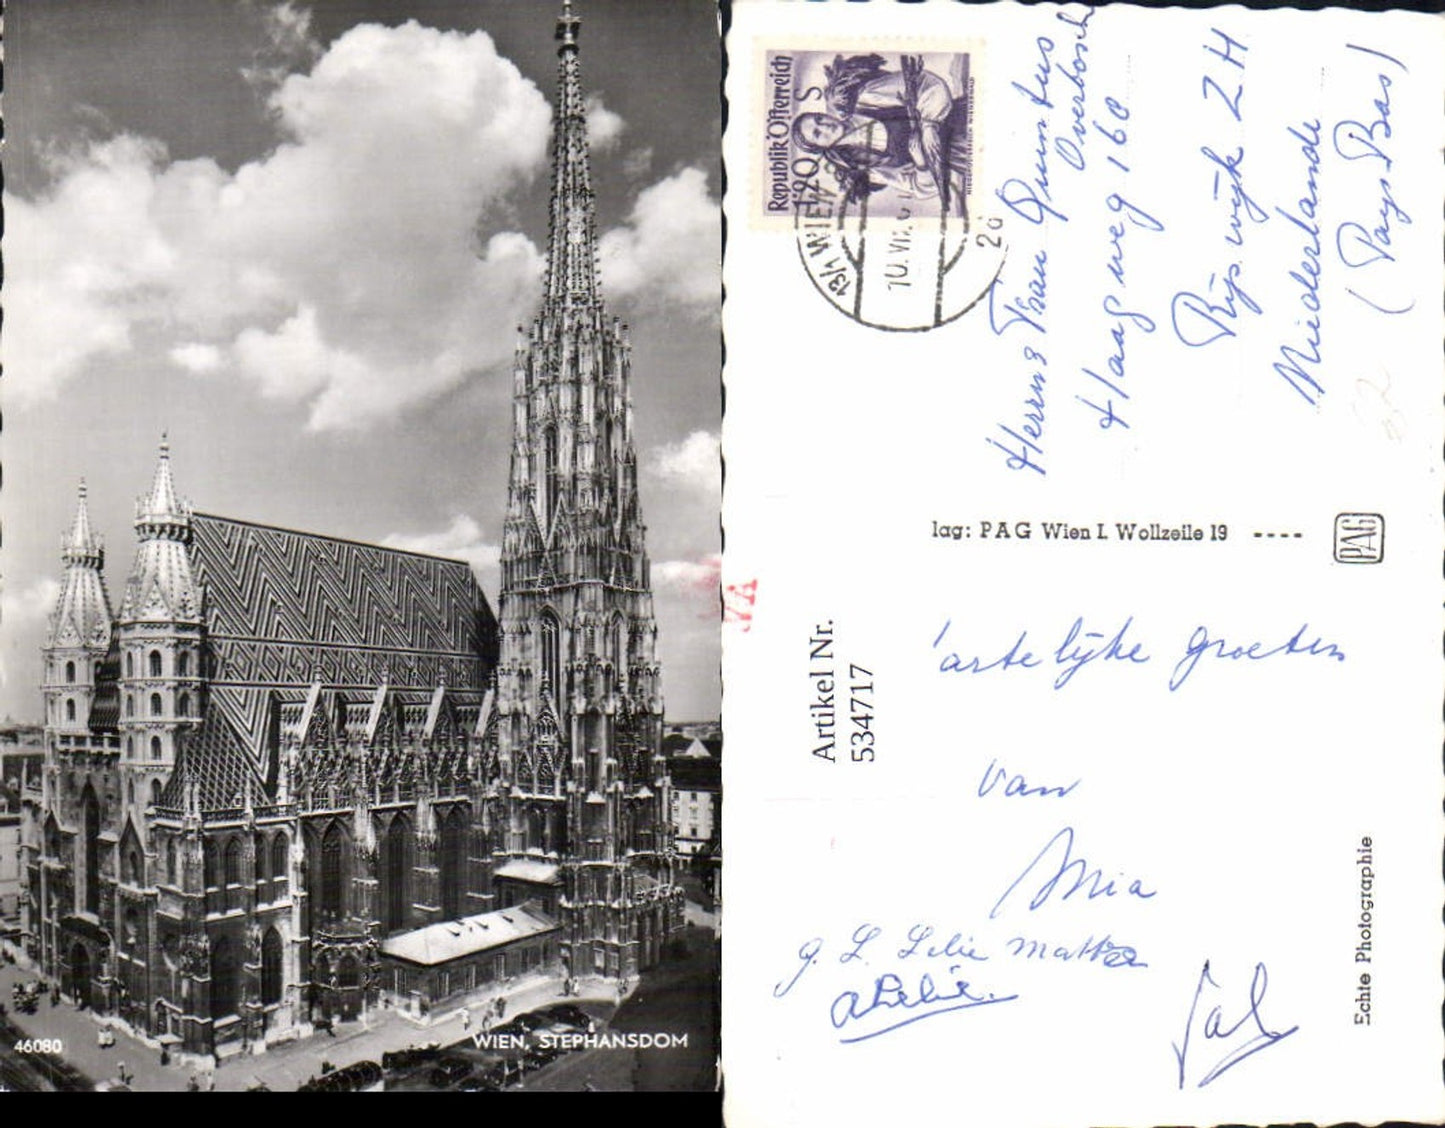 46080
WIEN, STEPHANSDOM
Republik Österreich
1'20 S
WIEN
10. VII. 6
20
Quintus
Overbosch
Haagweg 160
Rijswijk ZH
Niederlande
(Pays Bas)
lag: PAG Wien I. Wollzeile 19 ----
PAG
VA
Artikel Nr.
534717
'artelijke groeten
van
Mia
g. L. Lelie
Echte Photographie